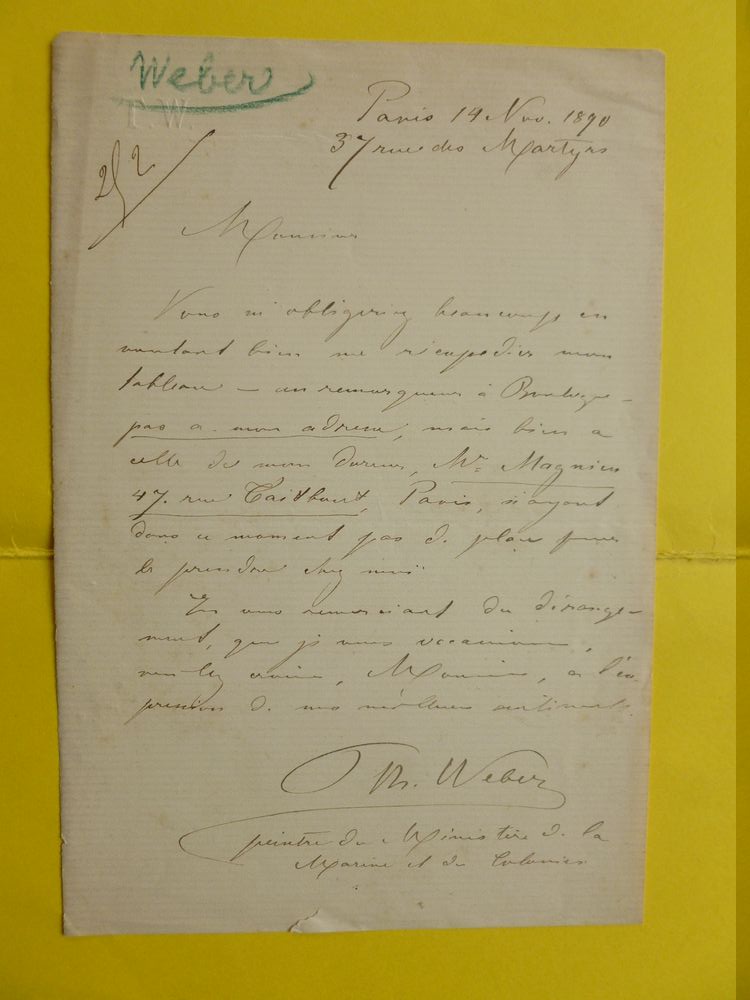 Weber
T.W.
Paris 14 Nov. 1890
37 rue des Martyrs
2/2
Monsieur
Vous m'obligeriez beaucoup en
voulant bien me réexpédier mon
tableau — un remorqueur à Boulogne —
pas a mon adresse, mais bien a
celle de mon doreur, Mr. Magnien
47. rue Taitbout, Paris, n'ayant
dans ce moment pas de place pour
le prendre chez moi
En vous remerciant du dérange-
ment, que je vous occasionne,
veuillez croire, Monsieur, a l'ex-
pression de mes meilleurs sentiments.
Th. Weber
peintre du Ministère de la
Marine et des Colonies